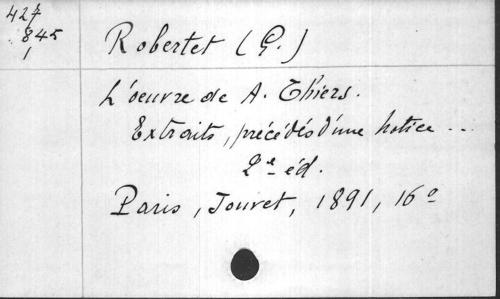 427
845
1
Robertet (G.)
L'oeuvre de A. Thiers.
Extraits, précédés d'une notice ...
2e éd.
Paris, Jouvet, 1891, 16o